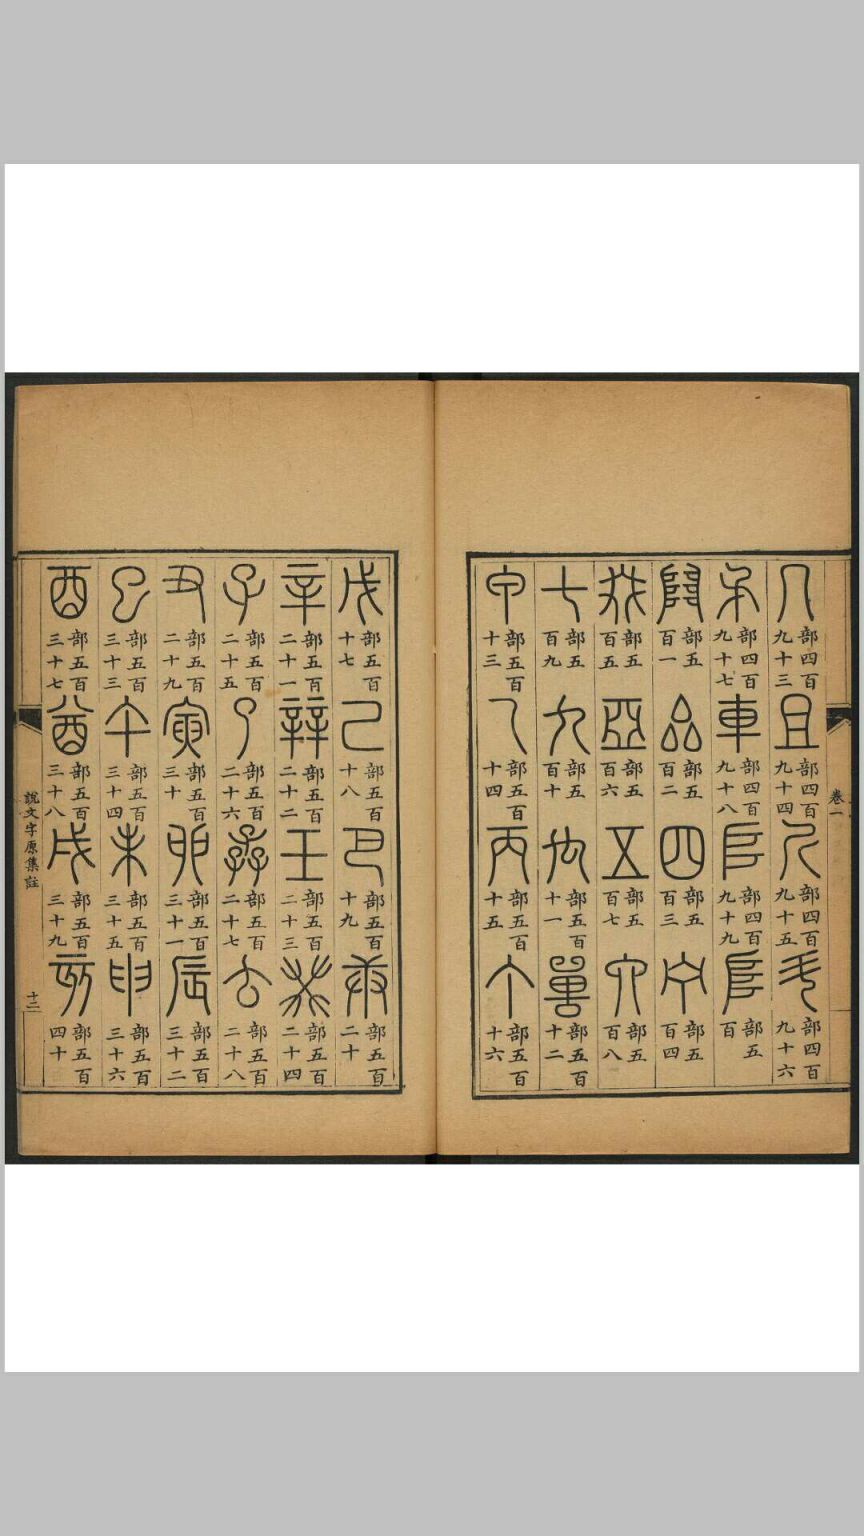 卷一
几部四百九十三 且部四百九十四 斤部四百九十五 斗部四百九十六
矛部四百九十七 車部四百九十八 𠂤部四百九十九 𨸏部五百
𨺅部五百一 厽部五百二 四部五百三 宁部五百四
叕部五百五 亞部五百六 五部五百七 六部五百八
七部五百九 九部五百十 禸部五百十一 嘼部五百十二
甲部五百十三 乙部五百十四 丙部五百十五 丁部五百十六
戊部五百十七 己部五百十八 巴部五百十九 庚部五百二十
辛部五百二十一 辡部五百二十二 壬部五百二十三 癸部五百二十四
子部五百二十五 了部五百二十六 孨部五百二十七 𠫓部五百二十八
丑部五百二十九 寅部五百三十 卯部五百三十一 辰部五百三十二
巳部五百三十三 午部五百三十四 未部五百三十五 申部五百三十六
酉部五百三十七 酋部五百三十八 戌部五百三十九 亥部五百四十
說文字原集註 十二